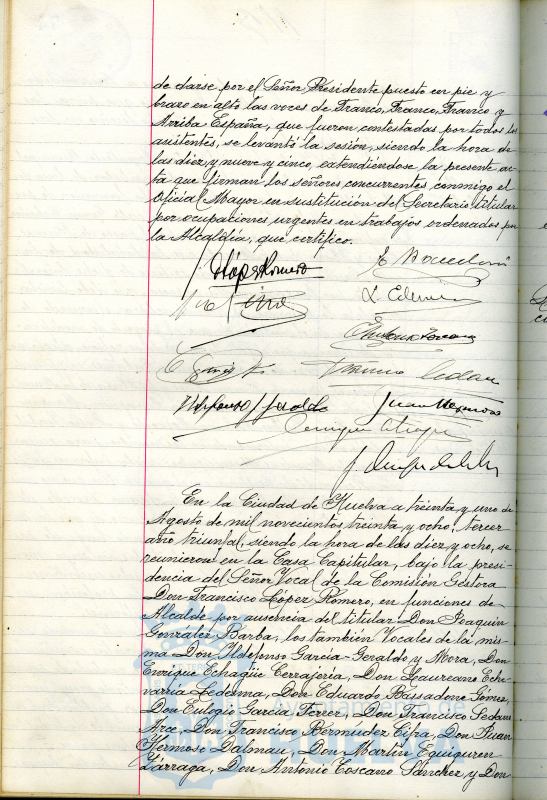 de darse por el Señor Presidente puesto en pie y
brazo en alto las voces de Franco, Franco, Franco y
Arriba España, que fueron contestadas por todos los
asistentes, se levantó la sesión, siendo la hora de
las diez y nueve y cinco, extendiéndose la presente ac-
ta que firman los señores concurrentes, conmigo el
Oficial Mayor en sustitución del Secretario titular
por ocupaciones urgentes en trabajos ordenados por
la Alcaldía, que certifico.
López Romero
Ildefonso G Geraldo
Juan Hermoso
En la Ciudad de Huelva a treinta y uno de
Agosto de mil novecientos treinta y ocho, tercer
año triunfal, siendo la hora de las diez y ocho, se
reunieron en la Casa Capitular, bajo la presi-
dencia del Señor Vocal de la Comisión Gestora
Don Francisco López Romero, en funciones de
Alcalde por ausencia del titular Don Joaquín
González Barba, los también Vocales de la mis-
ma Don Ildefonso García-Geraldo y Mora, Don
Enrique Echagüe Cerrajería, Don Laureano Eche-
varría Ledesma, Don Eduardo Bassadone Gómez,
Don Eulogio García Ferrer, Don Francisco Sedano
Arce, Don Francisco Bermúdez Cifra, Don Juan
Hermoso Dalmau, Don Martín Eguiguren
Lárraga, Don Antonio Toscano Sánchez, y Don
Ayuntamiento de